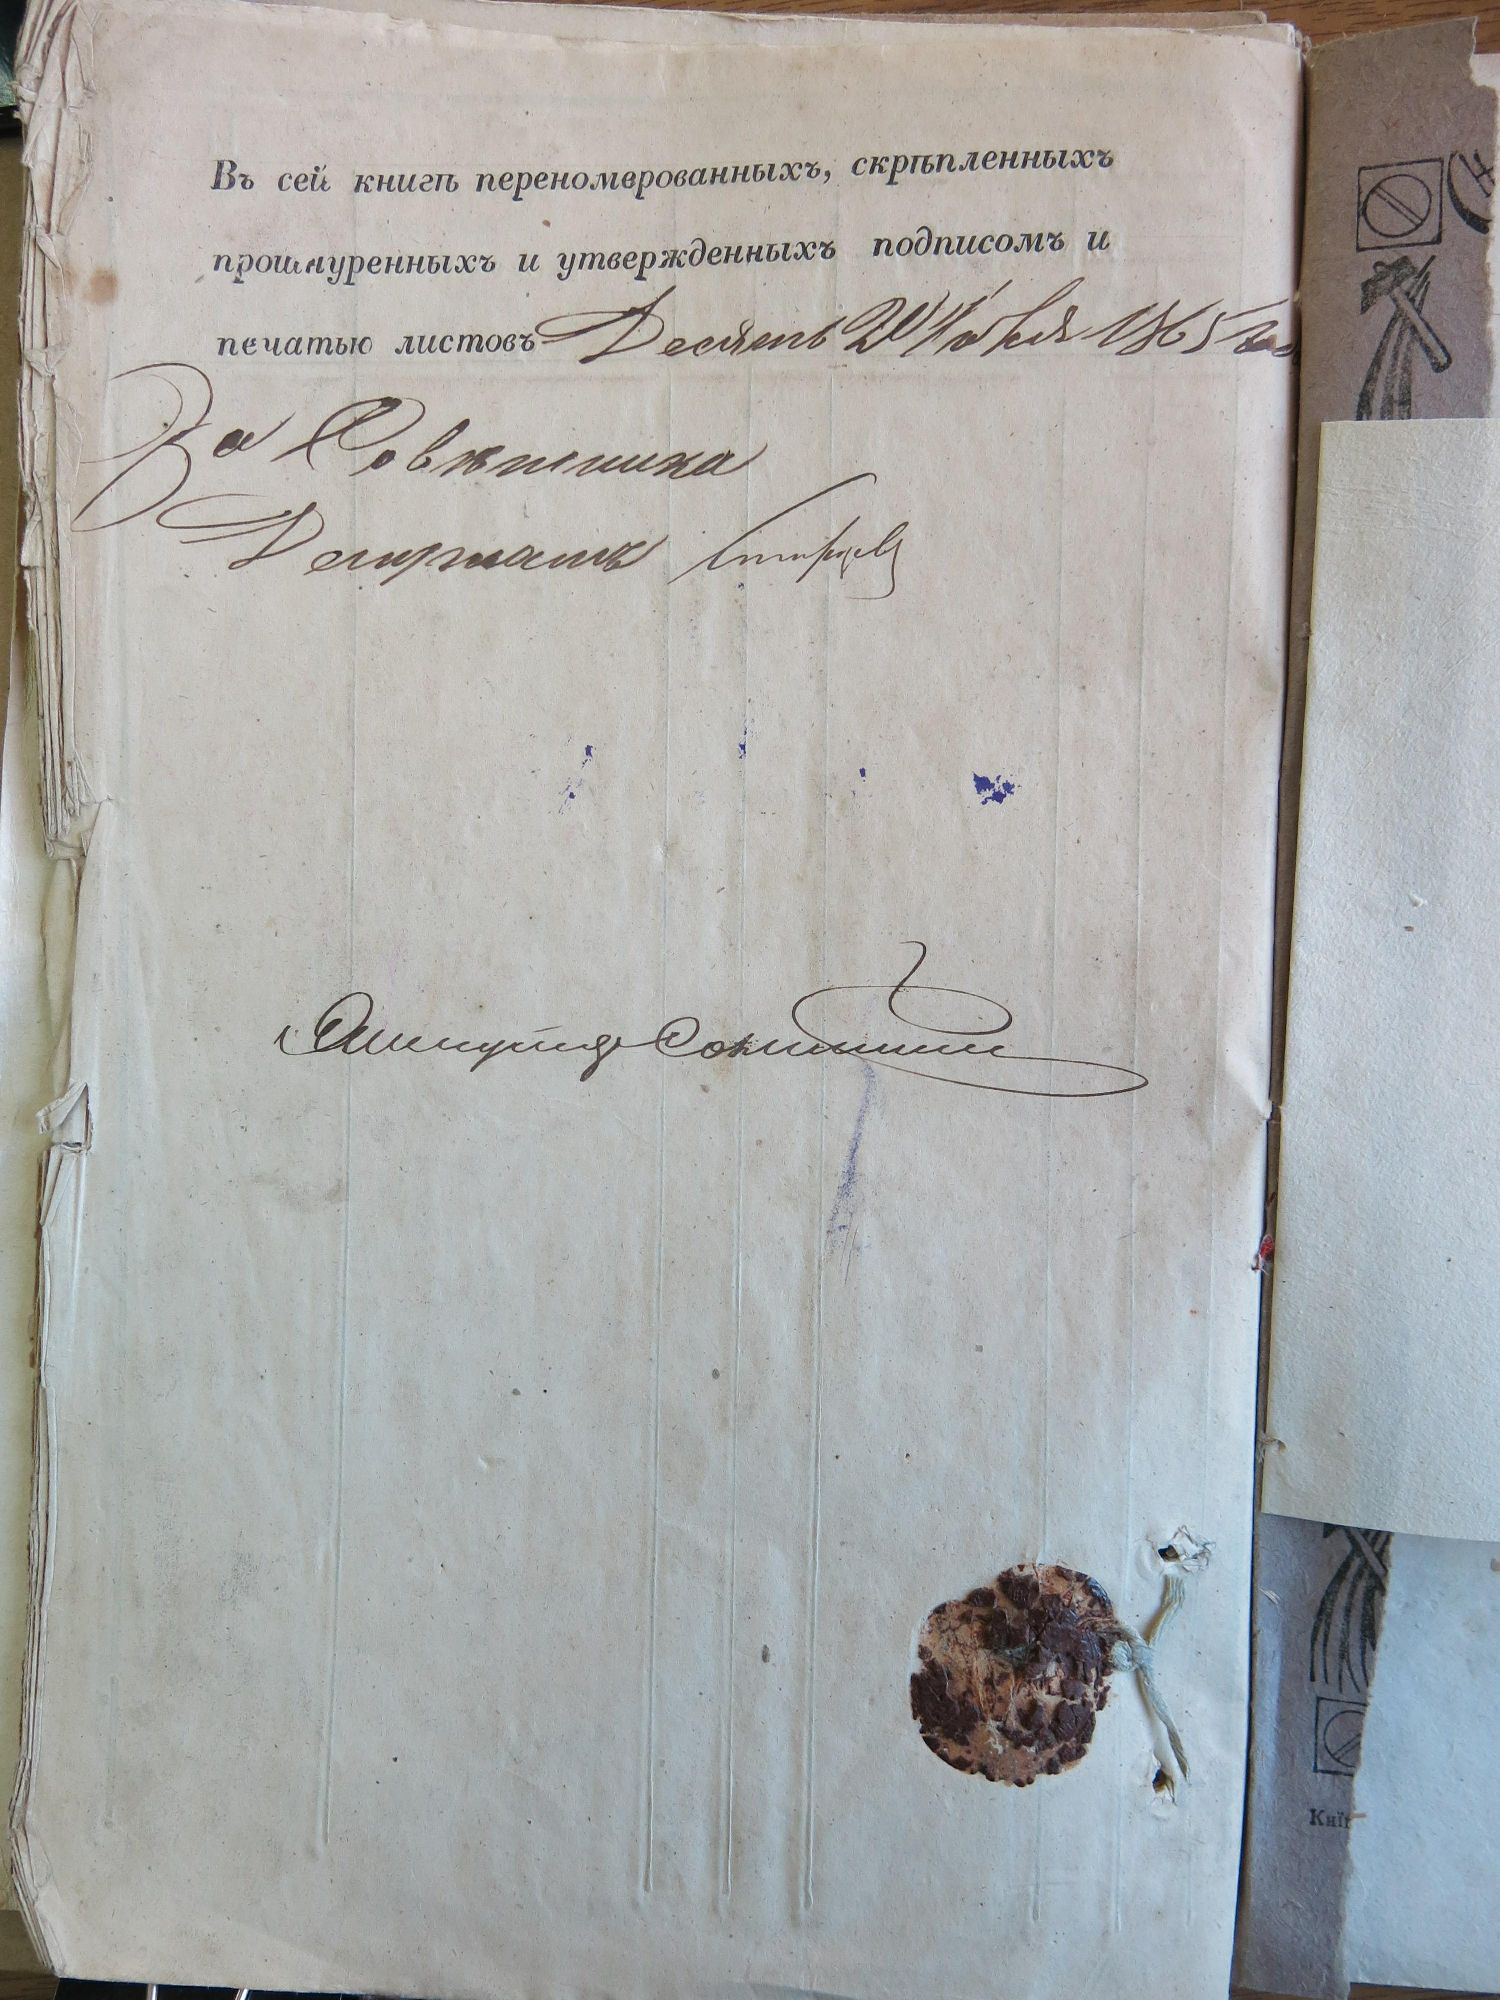 Въ сей книгѣ переномерованныхъ, скрѣпленныхъ
прошнуренныхъ и утвержденныхъ подписомъ и
печатью листовъ Десять 20 Ноября 1865 года
За Совѣтника
Депутатъ
Книг